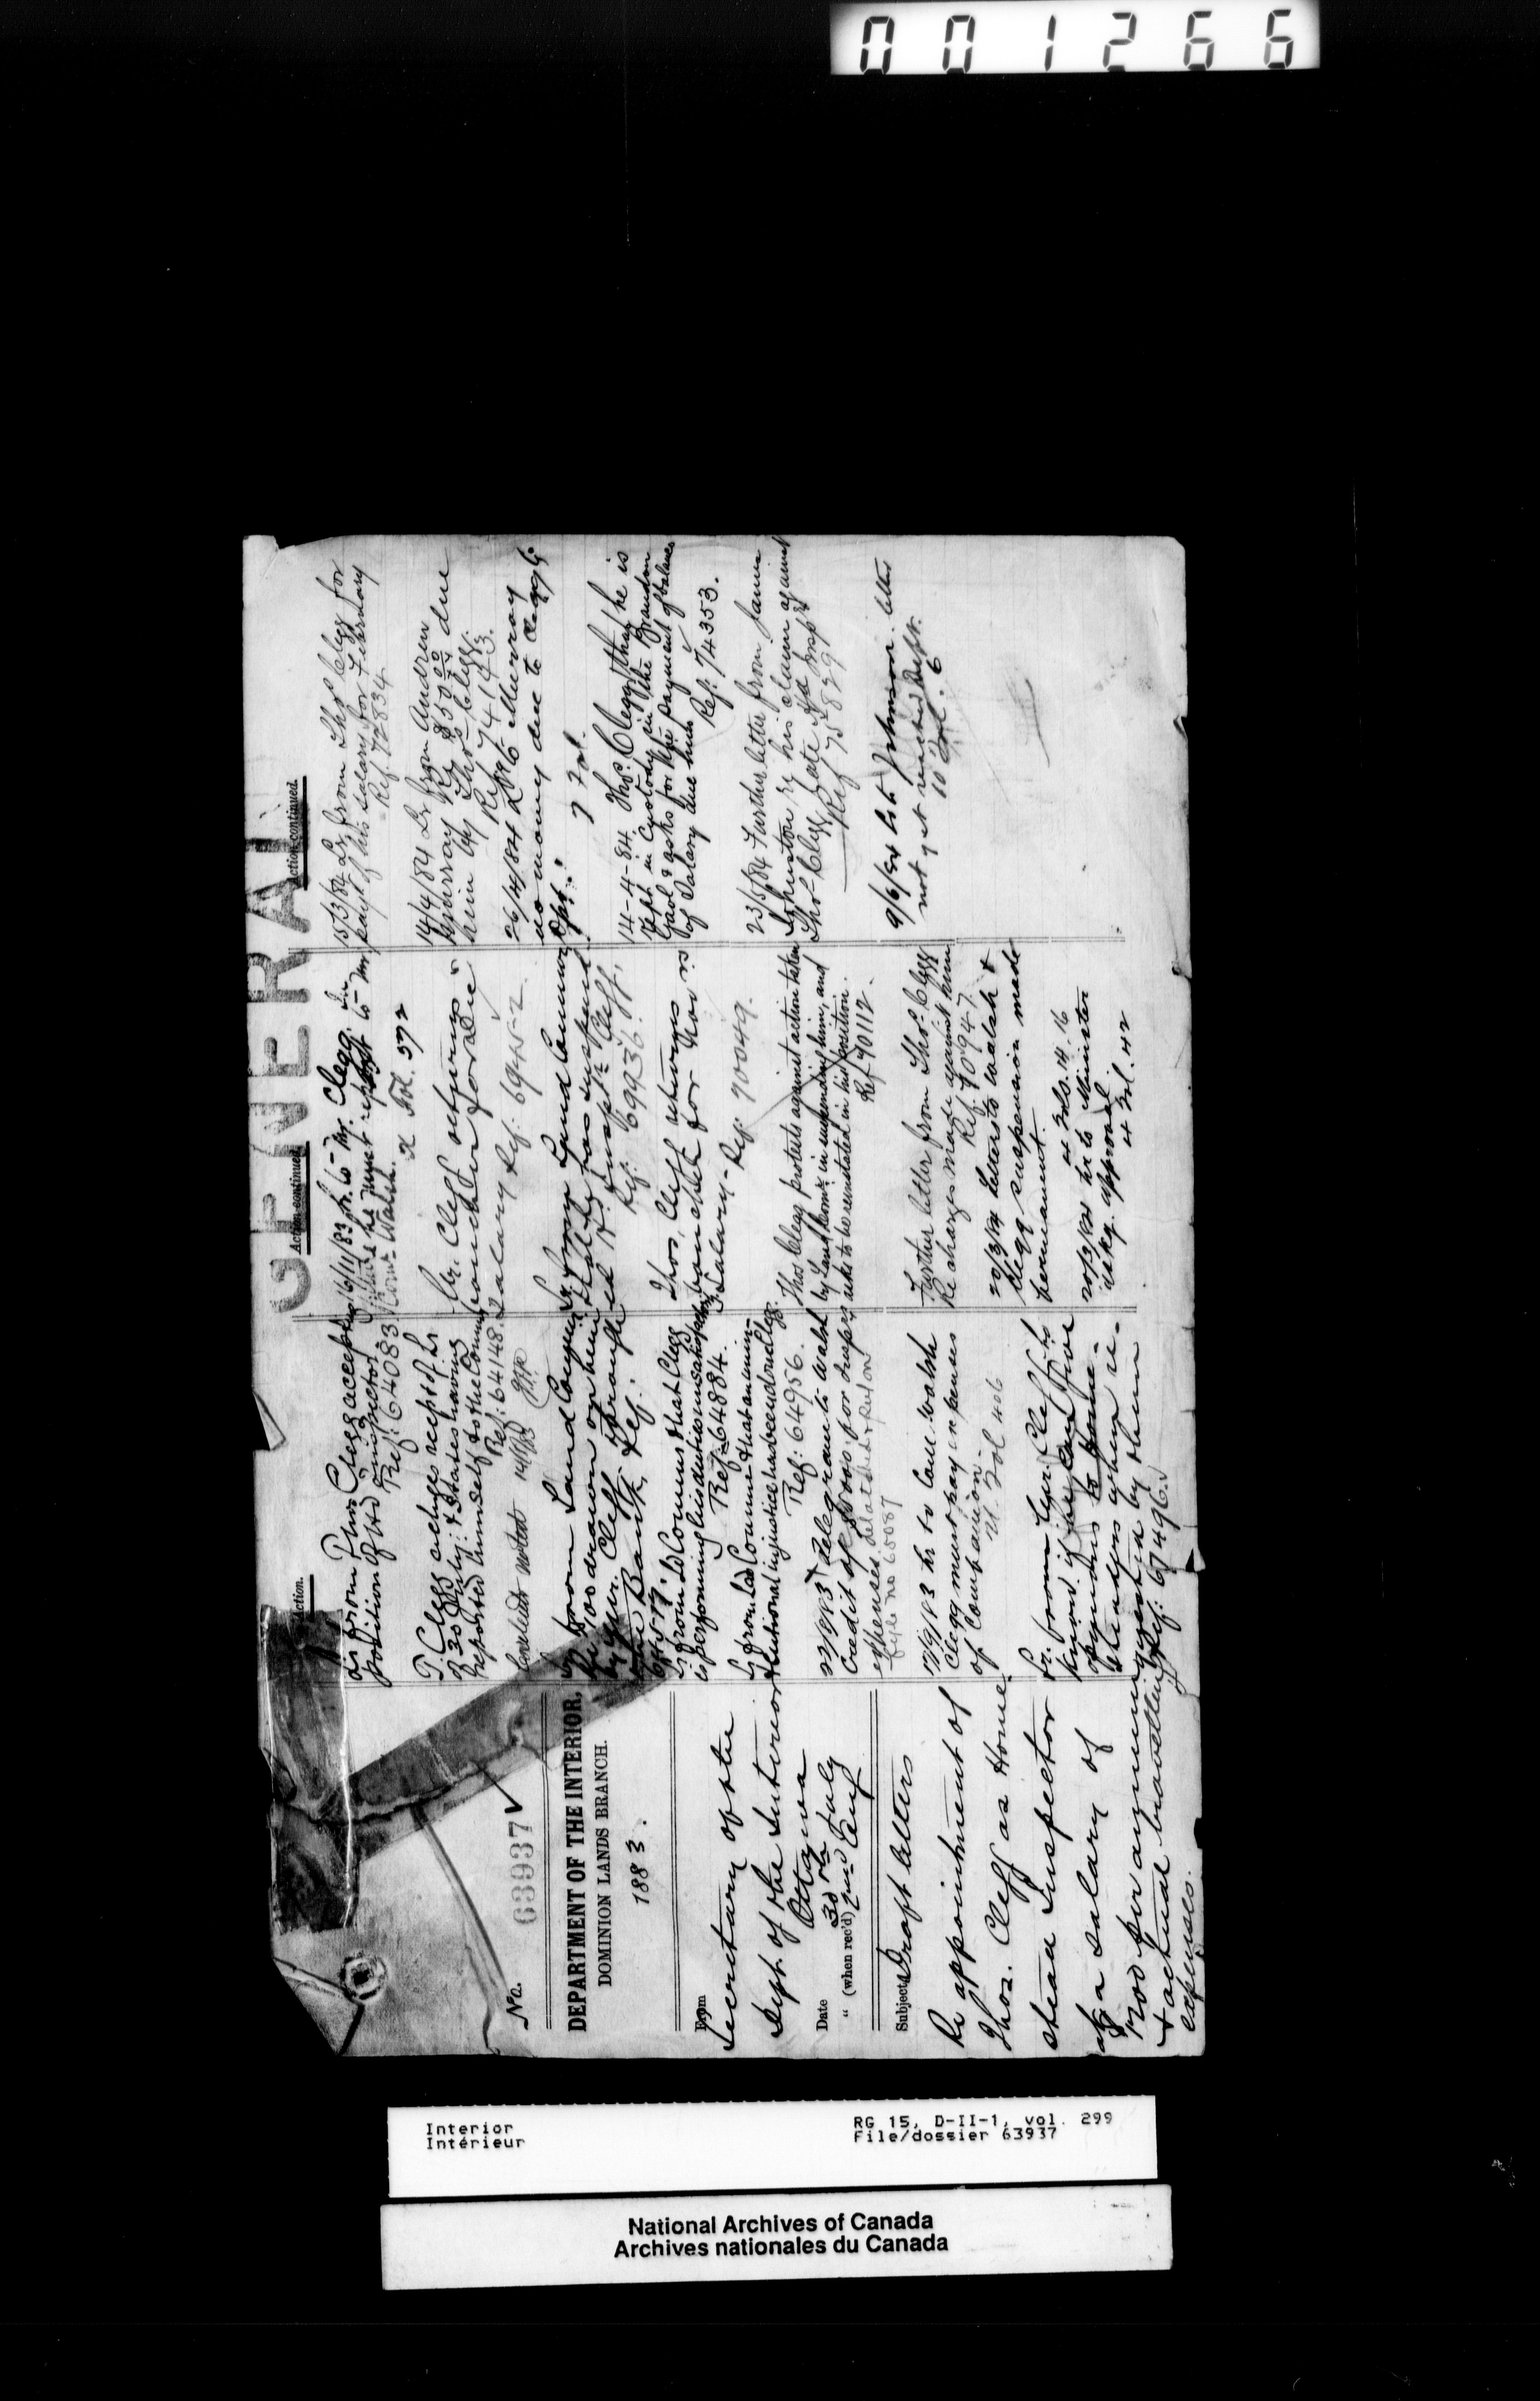 001266
GENERAL
No. 63937
DEPARTMENT OF THE INTERIOR,
DOMINION LANDS BRANCH.
1883.
From
Secretary of the
Dept. of the Interior
Ottawa
Date 30th July
" (when rec'd) 2nd Aug
Subject, Draft letters
Re appointment of
Thos. Clegg as Home
stead Inspector
at a salary of
per annum
& actual travelling
expenses.
Action.
Lr from Thos Clegg accepting
position of Hd Inspector
Ref: 64083
T. Clegg acknges receipt of Lr
of 30 July: & states having
reported himself to the Commr
Ref: 64148.
Lr from Land Commr
Re 100 drawn on him
by Mr. Clegg through
Bank, Ref:
64577.
Lr from Ld Commr that Clegg
is performing his duties
Ref: 64884.
Lr from Ld Commr that an unin-
tentional injustice has been done Clegg.
Ref: 64956.
22/9/83 Telegram to Walsh
Credit of for Inspers
expenses.
file no 65087
17/9/83 Lr to Com Walsh
Clegg must pay expenses
of Companion.
Fol 406
Lr. from Mr. Clegg to
know if he can
ponies
charges when re-
by them
Ref: 67496.
Action continued.
16/11/83 Lr. to Mr. Clegg. In
he must report to Mr
Com. Walsh.
Fol. 572
Mr. Clegg returns
voucher for
Salary Ref. 69452.
Lr. from Land Commr
that he has suspend
ed Hd Inspt. Clegg.
Ref: 69936.
Thos. Clegg returns
voucher for Nov.
Salary - Ref: 70049.
Thos Clegg protests against action taken
by Land Comr. in suspending him, and
asks to be reinstated in his position.
Ref 70112.
Further letter from Thos. Clegg
Re charges made against him
Ref. 70947.
20/3/84 letters to Walsh &
Clegg suspension made
permanent.
4 Fols. 14. 16
20/3/84 Lr to Minister
askg. approval.
4 Fol. 42
Action continued.
15/3/84 Lr from Thos Clegg for
payt of his salary for February
Ref. 72834
14/4/84 Lr from Andrew
Murray Re $50 00/100 due
him by Thos Clegg.
Ref 74143.
26/4/84 Lr to Murray
no money due to Clegg by
Dpt.
7 Fol.
14-4-84. Thos. Clegg that he is
kept in Custody in the Brandon
Gaol & asks for the payment of balance
of Salary due him
Ref: 74353.
23/5/84 Further letter from James
Johnston re his claim against
Thos Clegg late Hd Insp
Ref 75829
9/6/84 Lr to Johnson. letter
not yet reached Dept.
10 Fol. 6
Interior
Intérieur
RG 15, D-II-1, vol. 299
File/dossier 63937
National Archives of Canada
Archives nationales du Canada